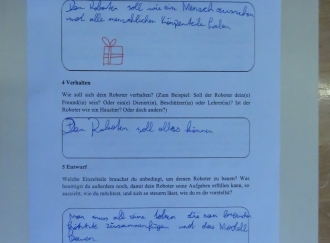 Den Roboter soll wie ein Mensch aussehen
und alle menschlichen Körperteile haben
4 Verhalten
Wie soll sich dein Roboter verhalten? (Zum Beispiel: Soll der Roboter dein(e)
Freund(in) sein? Oder ein(e) Diener(in), Beschützer(in) oder Lehrer(in)? Ist der
Roboter wie ein Haustier? Oder doch anders?)
Den Roboter soll alles können
5 Entwurf
Welche Einzelteile brauchst du unbedingt, um deinen Roboter zu bauen? Was
benötigst du außerdem noch, damit dein Roboter seine Aufgaben erfüllen kann, so
aussieht, wie du möchtest, und sich so steuern lässt, wie du es dir vorstellst?
man muss alle
zusammenfügen und das
Bauen